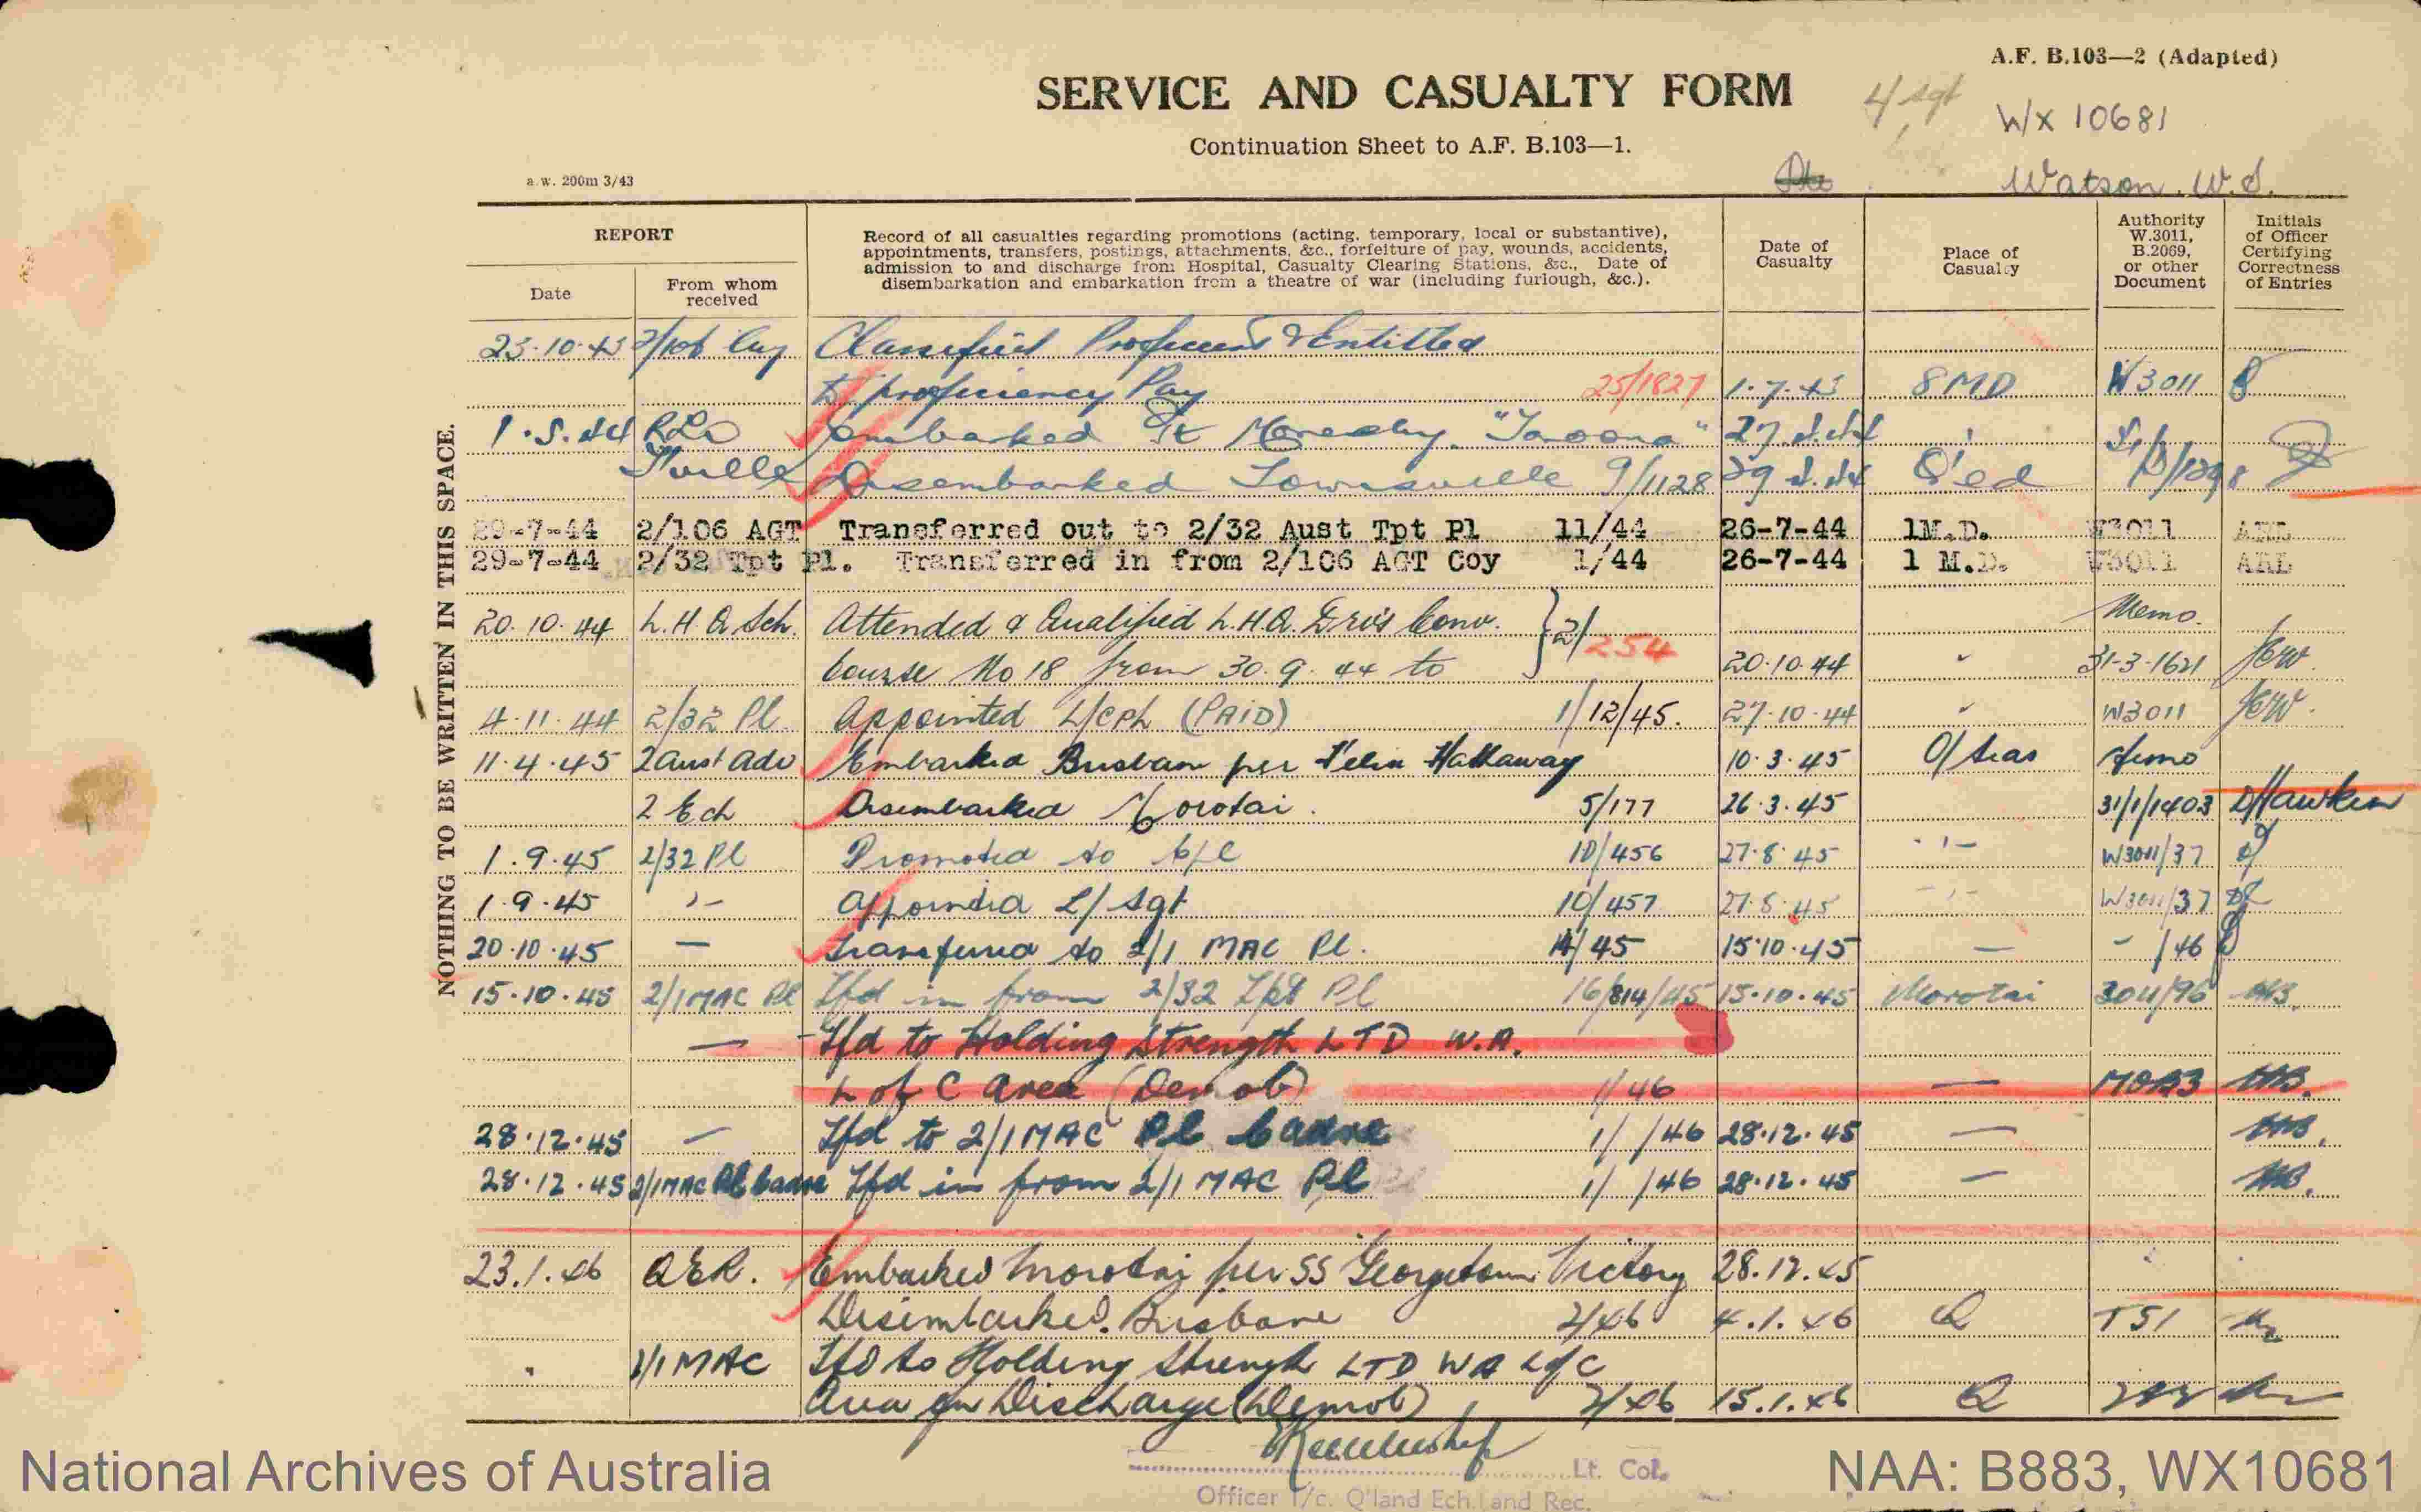 A.F. B.103—2 (Adapted)
SERVICE AND CASUALTY FORM
L/Sgt
WX 10681
Continuation Sheet to A.F. B.103—1.
a.w. 200m 3/43
Pte
Watson. W. S.
REPORT
Date
From whom received
Record of all casualties regarding promotions (acting, temporary, local or substantive),
appointments, transfers, postings, attachments, &c., forfeiture of pay, wounds, accidents,
admission to and discharge from Hospital, Casualty Clearing Stations, &c., Date of
disembarkation and embarkation from a theatre of war (including furlough, &c.).
Date of Casualty
Place of Casualty
Authority W.3011, B.2069, or other Document
Initials of Officer Certifying Correctness of Entries
NOTHING TO BE WRITTEN IN THIS SPACE.
23.10.43 2/106 Coy Classified Proficient & Entitled
to proficiency Pay 25/1827 1.7.43 8MD W3011
1.5.44 RLO Embarked Pt Moresby. "Taroona" 27.4.44
T'ville Disembarked Townsville 9/1128 29.4.44 Q'ed
29-7-44 2/106 AGT Transferred out to 2/32 Aust Tpt Pl 11/44 26-7-44 1M.D. W3011 ARL
29-7-44 2/32 Tpt Pl. Transferred in from 2/106 AGT Coy 1/44 26-7-44 1 M.D. W3011 ARL
20.10.44 L.H.Q Sch. Attended & Qualified L.H.Q. Dvr's Conv. 2/254 Memo.
Course No 18 from 30.9.44 to 20.10.44 " 31-3-1621 JEW.
4.11.44 2/32 Pl. Appointed L/Cpl (PAID) 1/12/45. 27.10.44 " W3011 JEW.
11.4.45 2 Aust Adv Embarked Brisbane per Felix Hathaway 10.3.45 O/Seas
2 Ech Disembarked Morotai. 5/177 26.3.45 31/1/1403 Hawken
1.9.45 2/32 Pl Promoted to Cpl 10/456 27.8.45 -"- W3011/37
1.9.45 -"- Appointed L/Sgt 10/457 27.8.45 -"- W3011/37
20.10.45 — Transferred to 2/1 MAC Pl. 14/45 15.10.45 — - /46
15.10.45 2/1 MAC Pl Tfd in from 2/32 Tpt Pl 16/814/45 15.10.45 Morotai 3011/96
— Tfd to Holding Strength LTD W.A.
L of C Area (Demob) 1/46 —
28.12.45 — Tfd to 2/1 MAC Pl Cadre 1/ /46 28.12.45 —
28.12.45 2/1 MAC Pl Cadre Tfd in from 2/1 MAC Pl 1/ /46 28.12.45 —
23.1.46 QER. Embarked Morotai per SS Georgetown Victory 28.12.45
Disembarked. Brisbane 2/46 4.1.46 Q T51
" 2/1 MAC Tfd to Holding Strength LTD WA L of C
Area for Discharge (Demob) 2/46 15.1.46 Q
Lt. Col.
Officer I/c. Q'land Ech. and Rec.
National Archives of Australia
NAA: B883, WX10681